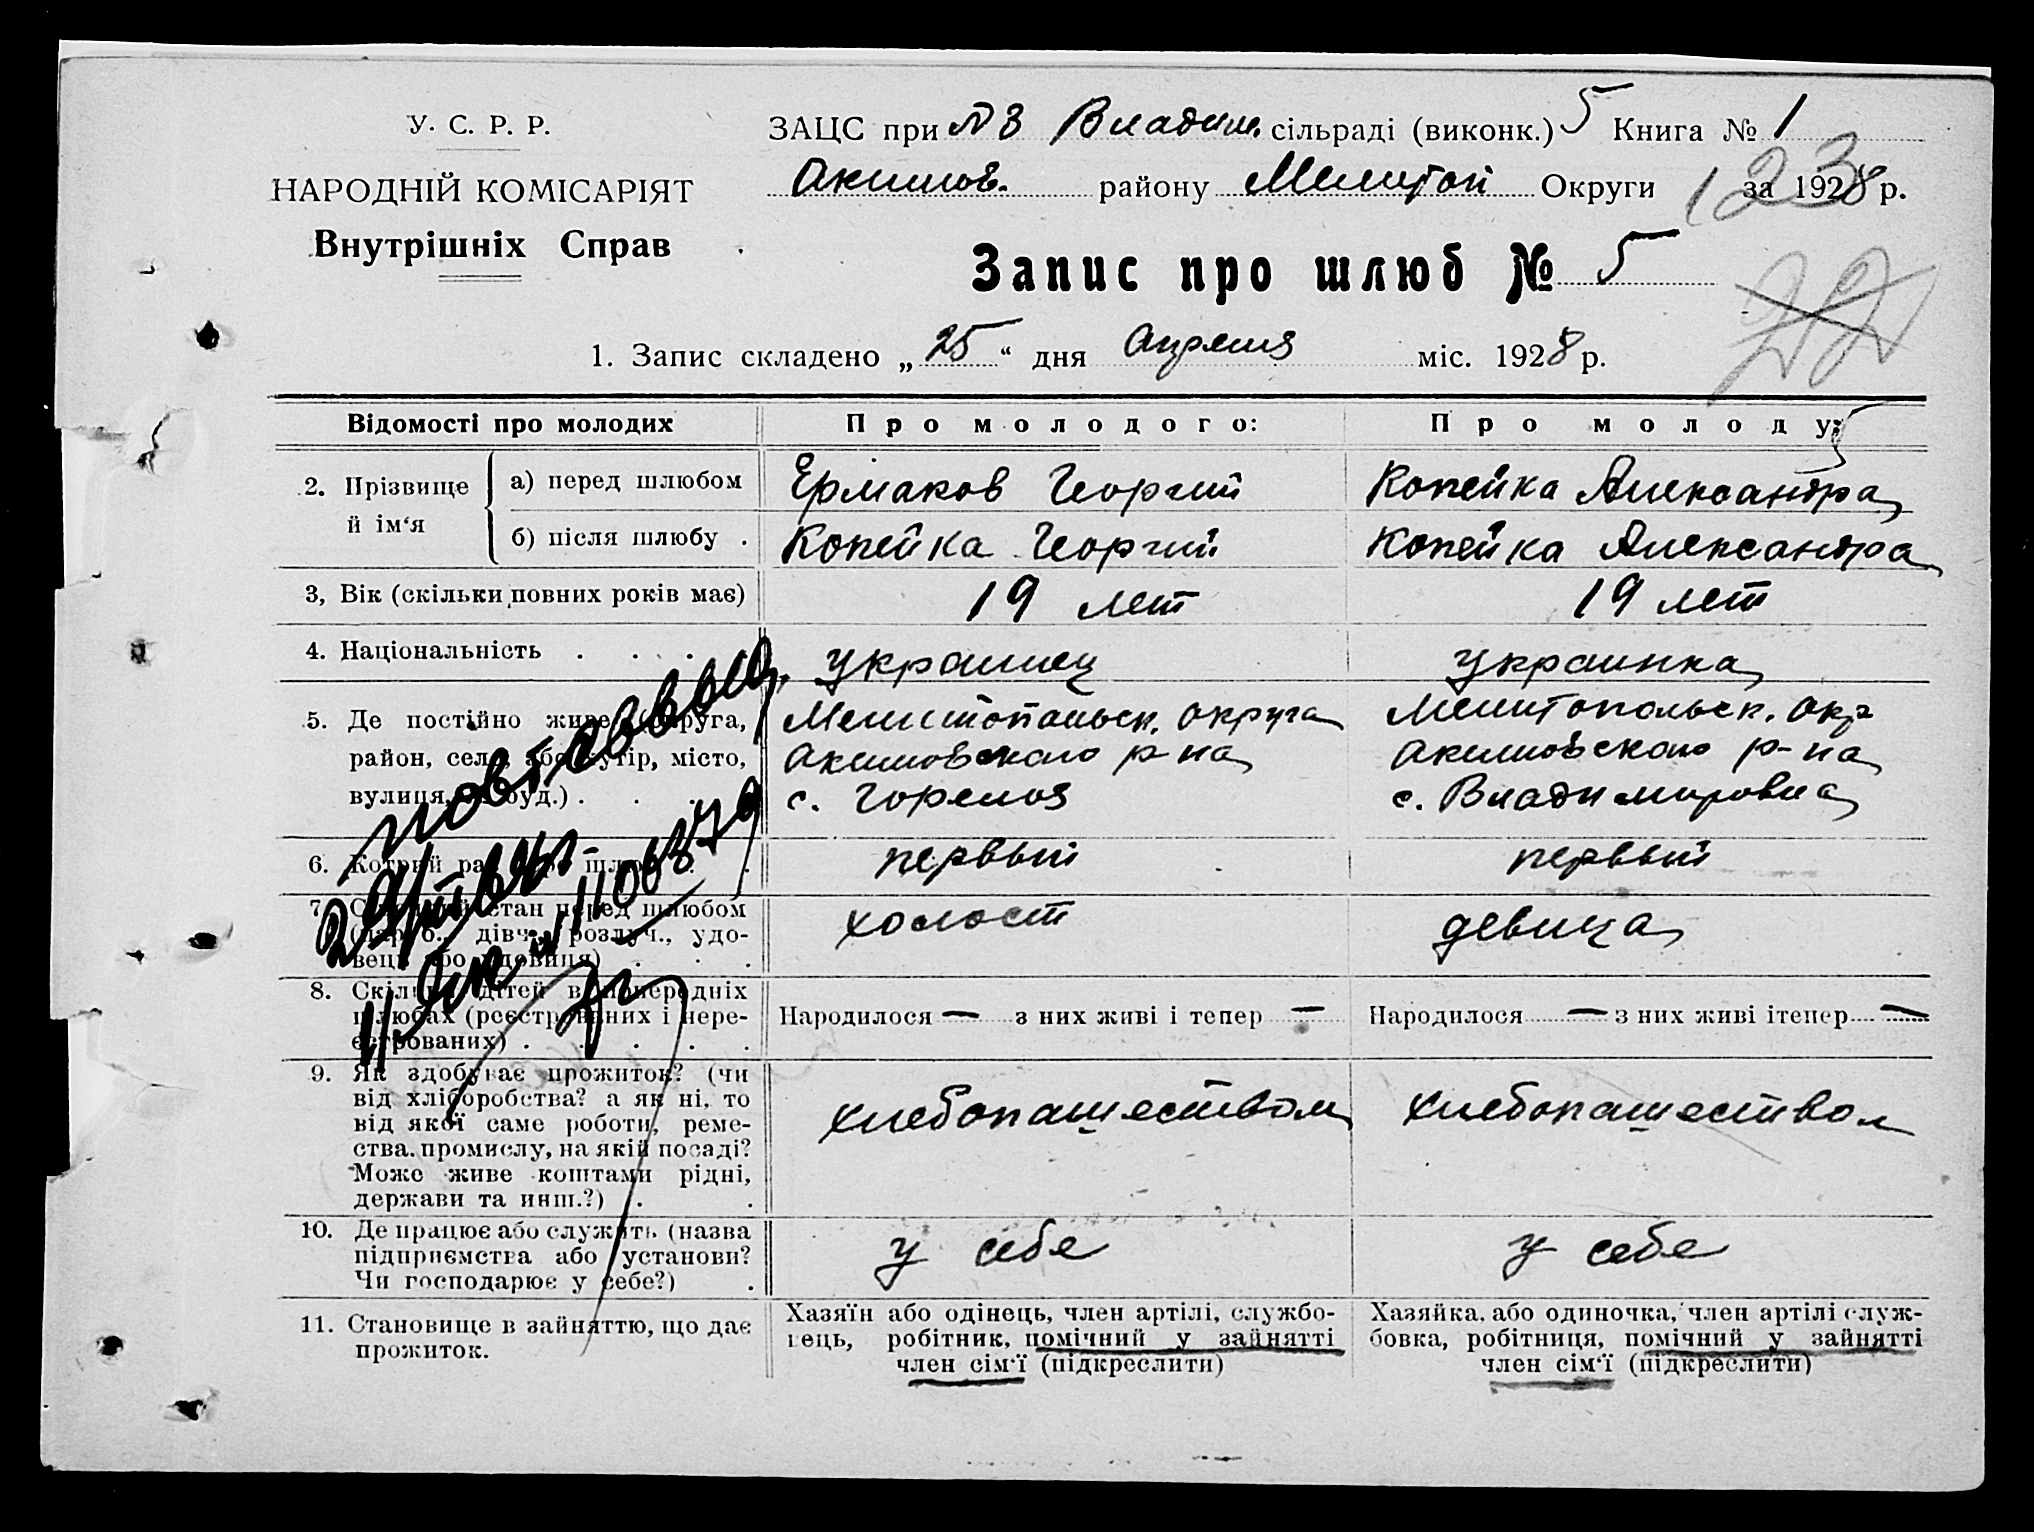 У. С. Р. Р.
НАРОДНІЙ КОМІСАРІЯТ
Внутрішніх Справ
ЗАЦС при Владим. сільраді (виконк.) 5 Книга № 1
Акимов. району Мелитоп Округи за 1928 р.
123
Запис про шлюб № 5
1. Запис складено „ 25 “ дня Апреля міс. 1928 р.
Відомості про молодих
Про молодого:
Про молоду:
2. Прізвище й ім‘я
а) перед шлюбом
Ермаков Георгий
Копейка Александра
б) після шлюбу .
Копейка Георгий
Копейка Александра
3, Вік (скільки повних років має)
19 лет
19 лет
4. Національність . . . .
украинец
украинка
5. Де постійно живе (округа,
район, село, або хутір, місто,
вулиця, № буд.) . . .
Мелитопольск. округа
Акимовского р-на
с. Горелоя
Мелитопольск. окр
Акимовского р-на
с. Владимировка
6. Котрий раз бере шлюб . .
первый
первый
7. Сімейний стан перед шлюбом
(паруб., дівч., розлуч., удо-
вець або удовиця) . . .
холост
девица
8. Скільки дітей в попередніх
шлюбах (реєстрованих і нере-
єстрованих) . . . . .
Народилося — з них живі і тепер —
Народилося — з них живі ітепер —
9. Як здобуває прожиток? (чи
від хліборобства? а як ні, то
від якої саме роботи, реме-
ства, промислу, на якій посаді?
Може живе коштами рідні,
держави та инш.?) . .
хлебопашеством
хлебопашеством
10. Де працює або служить (назва
підприємства або установи?
Чи господарює у себе?) .
у себе
у себе
11. Становище в зайняттю, що дає
прожиток.
Хазяїн або одінець, член артілі, службо-
вець, робітник, помічний у зайнятті
член сім‘ї (підкреслити)
Хазяйка, або одиночка, член артілі служ-
бовка, робітниця, помічний у зайнятті
член сім‘ї (підкреслити)